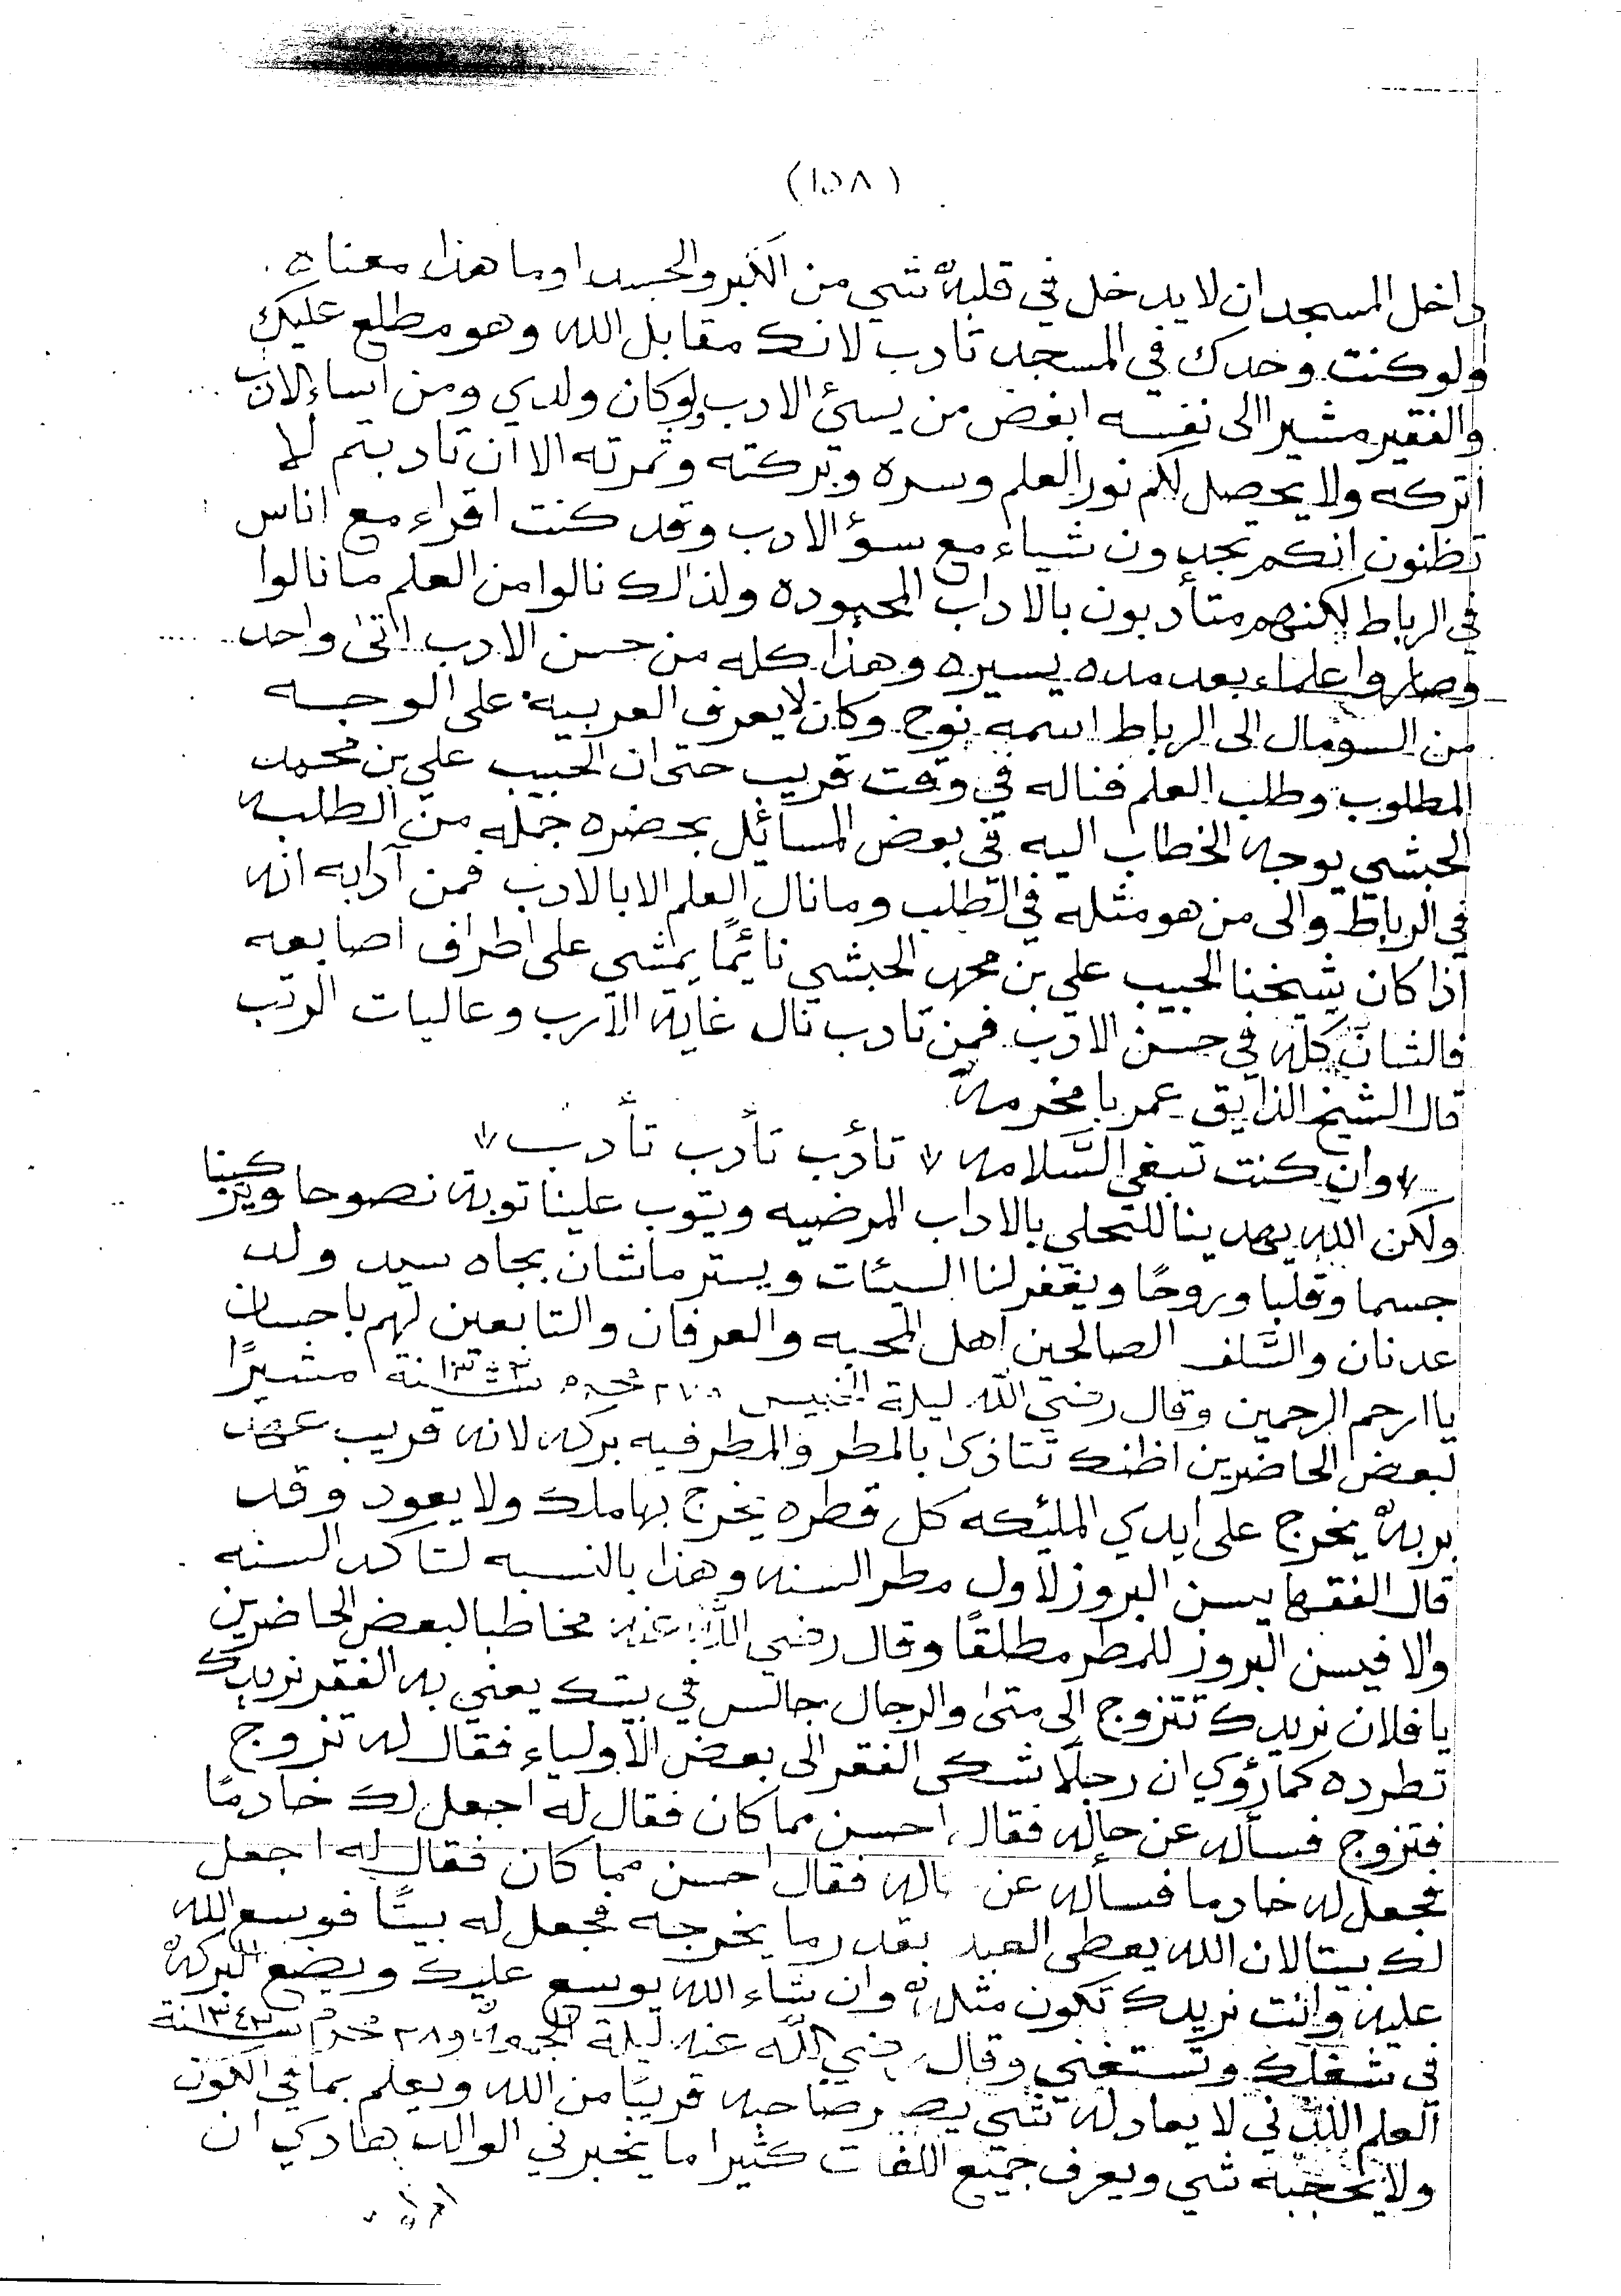 (١٥٨)
داخل المسجد ان لا يدخل في قلبه شي من الكبر والحسد او ما هذا معناه
ولو كنت وحدك في المسجد تادب لانك مقابل الله وهو مطلع عليك
والفقير مشيرا الى نفسه ابغض من يسئ الادب ولو كان ولدي ومن اساء الادب
اتركه ولا يحصل لكم نور العلم وسره وبركته وثمرته الا ان تادبتم لا
تظنون انكم تجدون شياء مع سؤ الادب وقد كنت اقراء مع اناس
في الرباط لكنهم متأدبون بالاداب المحموده ولذالك نالوا من العلم ما نالوا
وصاروا علماء بعد مده يسيره وهذا كله من حسن الادب اتى واحد
من السومال الى الرباط اسمه نوح وكان لا يعرف العربيه على الوجه
المطلوب وطلب العلم فناله في وقت قريب حتى ان الحبيب علي بن محمد
الحبشي يوجه الخطاب اليه في بعض المسائل بحضره جمله من الطلبه
في الرباط والى من هو مثله في الطلب وما نال العلم الا بالادب فمن آدابه انه
اذا كان شيخنا الحبيب علي بن محمد الحبشي نائمًا يمشي على اطراف اصابعه
فالشان كله في حسن الادب فمن تادب نال غاية الآرب وعاليات الرتب
قال الشيخ الذايق عمر بامخرمه
وان كنت تبغي السَّلامه تأدب تأدب تأدب
ولكن الله يهدينا للتحلي بالاداب المرضيه ويتوب علينا توبة نصوحا ويزكينا
جسما وقلبا وروحًا ويغفر لنا السيئات ويستر ما شان بجاه سيد ولد
عدنان والسَّلف الصالحين اهل المحبه والعرفان والتابعين لهم باحسان
يا ارحم الرحمين وقال رضي الله ليلة الخميس ٢٧ محرم سنة مشيرًا
لبعض الحاضرين اظنك تتاذى بالمطر والمطر فيه بركه لانه قريب عهد
بربه يخرج على ايدي الملئكه كل قطره يخرج بها ملك ولا يعود وقد
قال الفقها يسن البروز لاول مطر السنه وهذا بالنسبه لتاكد السنه
والا فيسن البروز للمطر مطلقًا وقال رضي الله عنه مخاطبا لبعض الحاضرين
يا فلان نريدك تتزوج الى متى والرجال جالس في بيتك يعني به الفقر نريدك
تطرده كما رؤي ان رجلًا شكى الفقر الى بعض الأولياء فقال له تزوج
فتزوج فسأله عن حاله فقال احسن مما كان فقال له اجعل لك خادمًا
فجعل له خادما فسأله عن حاله فقال احسن مما كان فقال له اجعل
لك بيتا لان الله يعطي العبد بقدر ما يخرجه فجعل له بيتًا فوسع الله
عليه وانت نريدك تكون مثله وان شاء الله يوسع عليك ويضع البركه
في شغلك وتستغني وقال رضي الله عنه ليلة الجمعة ٢٨ محرم سنة ١٣٤٣
العلم اللدني لا يعادله شي يصير صاحبه قريبًا من الله ويعلم بما في الكون
ولا يحجبه شي ويعرف جميع اللغات كثيرا ما يخبرني الوالد هادي ان